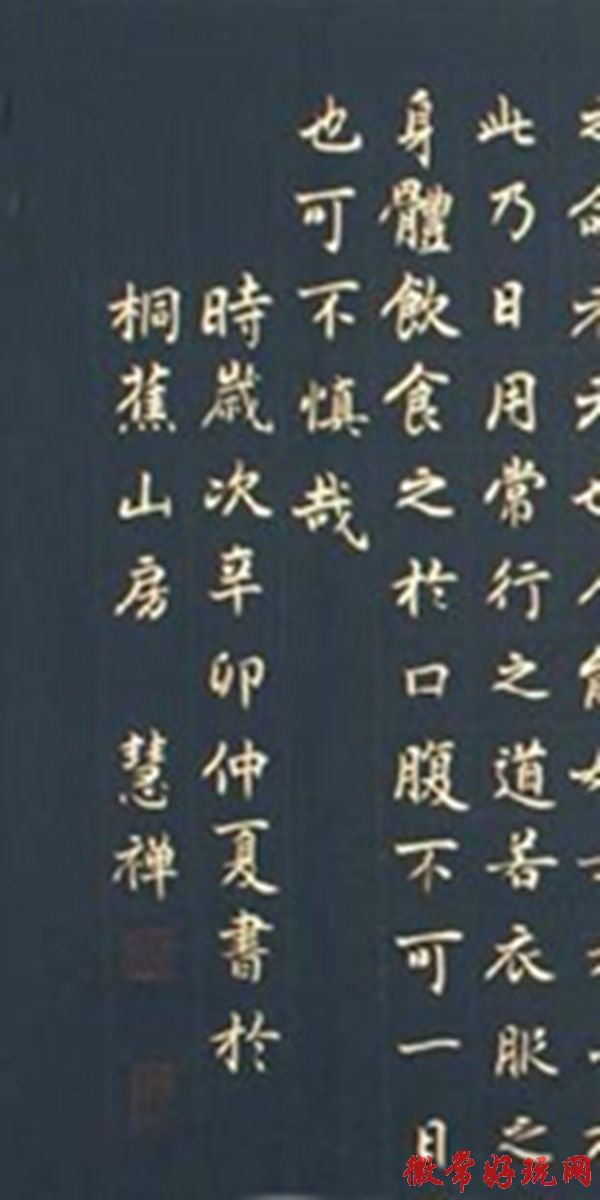 此乃日用常行之道若衣服之
身體飲食之於口腹不可一日
也可不慎哉
時歲次辛卯仲夏書於
桐蕉山房 慧禅
徽常好玩网